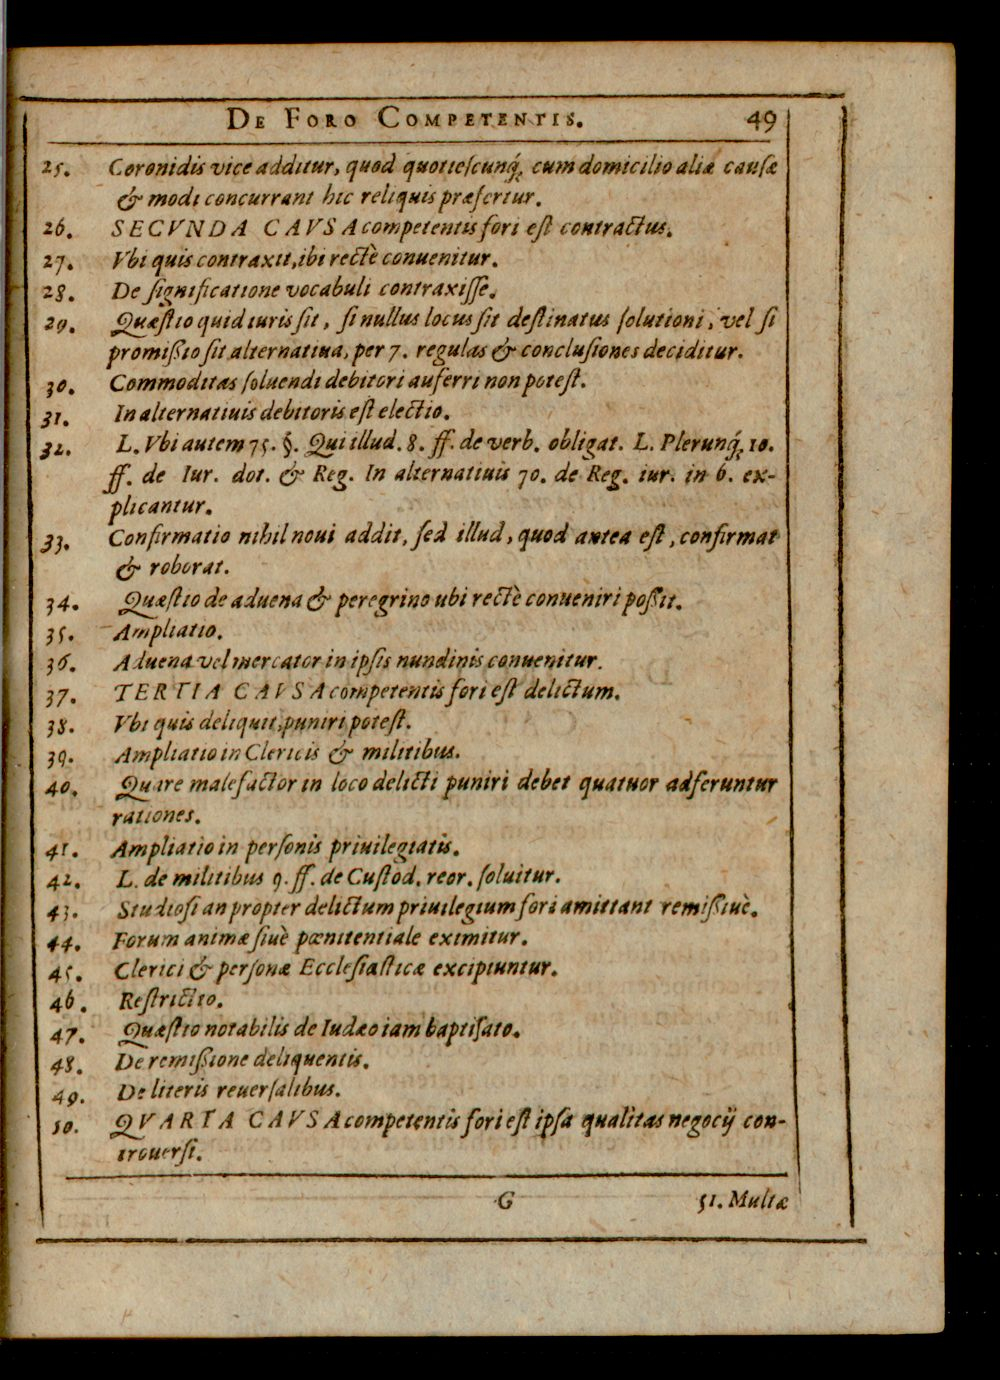 DE FORO COMPETENTIS. 49
25. Coronidis vice additur, quod quotieſcunq́; cum domicilio aliæ cauſæ
& modi concurrant hic reliquis præfertur.
26. SECVNDA CAVSA competentis fori eſt contractus.
27. Vbi quis contraxit, ibi rectè conuenitur.
28. De ſignificatione vocabuli contraxiſſe.
29. Quæſtio quid iuris ſit, ſi nullus locus ſit deſtinatus ſolutioni, vel ſi
promißio ſit alternatiua, per 7. regulas & concluſiones deciditur.
30. Commoditas ſoluendi debitori auferri non poteſt.
31. In alternatiuis debitoris eſt electio.
32. L. Vbi autem 75. §. Qui illud. 8. ff. de verb. obligat. L. Plerunq́; 10.
ff. de Iur. dot. & Reg. In alternatiuis 70. de Reg. iur. in 6. ex-
plicantur.
33. Confirmatio nihil noui addit, ſed illud, quod antea eſt, confirmat
& roborat.
34. Quæſtio de aduena & peregrino ubi rectè conueniri poßit.
35. Ampliatio.
36. Aduena vel mercator in ipſis nundinis conuenitur.
37. TERTIA CAVSA competentis fori eſt delictum.
38. Vbi quis deliquit, puniri poteſt.
39. Ampliatio in Clericis & militibus.
40. Quare malefactor in loco delicti puniri debet quatuor adferuntur
rationes.
41. Ampliatio in perſonis priuilegiatis.
42. L. de militibus 9. ff. de Cuſtod. reor. ſoluitur.
43. Studioſi an propter delictum priuilegium fori amittant remißiuè.
44. Forum animæ ſiuè pœnitentiale eximitur.
45. Clerici & perſonæ Eccleſiaſticæ excipiuntur.
46. Reſtrictio.
47. Quæſtio notabilis de Iudæo iam baptiſato.
48. De remißione deliquentis.
49. De literis reuerſalibus.
50. QVARTA CAVSA competentis fori eſt ipſa qualitas negocij con-
trouerſi.
G 51. Multæ